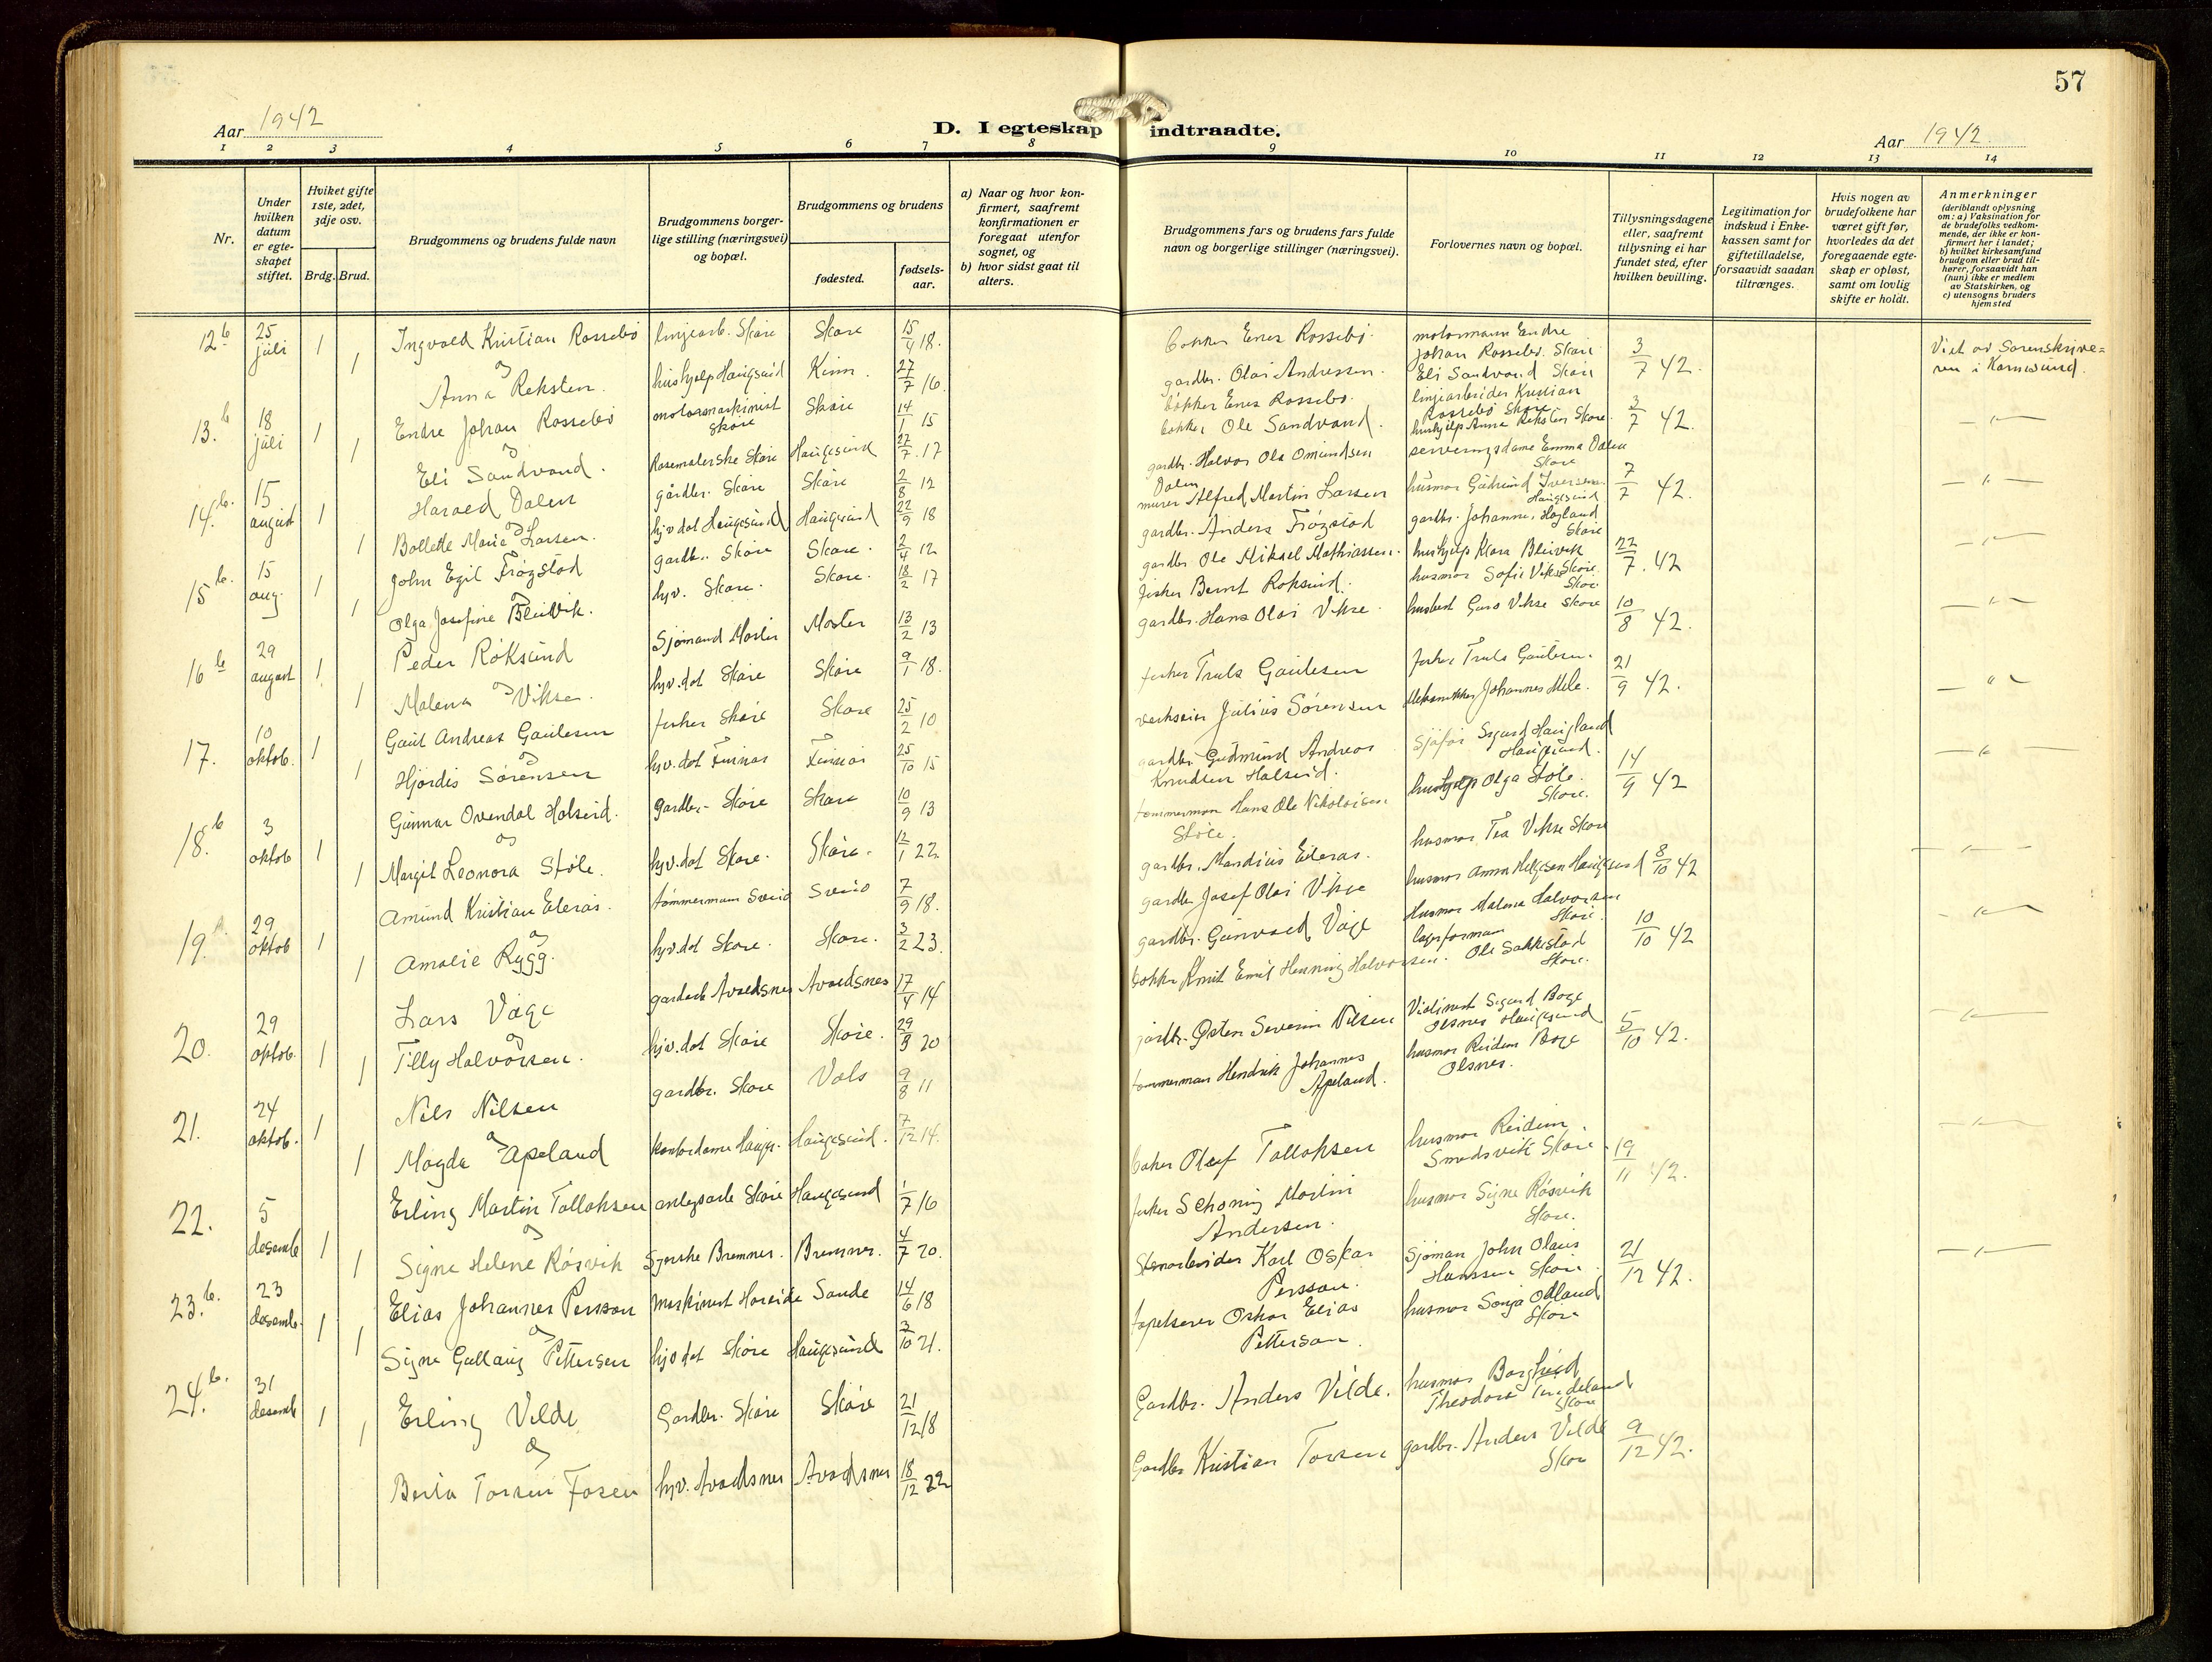 57
Aar 1942
D. I egteskap indtraadte.
Aar 1942.
1 2 3 4 5 6 7 8 9 10 11 12 13 14
Nr.
Under hvilken datum er egte-skapet stiftet.
Hviket gifte 1ste, 2det, 3dje osv.
Brdg. Brud.
Brudgommens og brudens fulde navn
Brudgommens borger-lige stilling (næringsvei) og bopæl.
Brudgommens og brudens
fødested.
fødsels-aar.
a) Naar og hvor kon-firmert, saafremt konfirmationen er foregaat utenfor sognet, og
b) hvor sidst gaat til alters.
Brudgommens fars og brudens fars fulde navn og borgerlige stillinger (næringsvei).
Forlovernes navn og bopæl.
Tillysningsdagene eller, saafremt tillysning ei har fundet sted, efter hvilken bevilling.
Legitimation for indskud i Enke-kassen samt for giftetilladelse, forsaavidt saadan tiltrænges.
Hvis nogen av brudefolkene har været gift før, hvorledes da det foregaaende egte-skap er opløst, samt om lovlig skifte er holdt.
Anmerkninger
(deriblandt oplysning om: a) Vaksination for de brudefolks vedkom-mende, der ikke er kon-firmert her i landet;
b) hvilket kirkesamfund brudgom eller brud til-hører, forsaavidt han (hun) ikke er medlem av Statskirken, og
c) utensogns bruders hjemsted
12 b 25 juli 1 Ingvald Kristian Rossebö linjearb. Skåre Skåre 15/4 18. bøkker Enes Rossebö motormann Endre Johan Rossebö. Skåre 3/7 42. Viet av Sorenskrive=ren i Karmsund.
1 og Anna Reksten. hushjelp Haugesund Kinn. 27/7 16 gardbr. Olai Andressen. Eli Sandvand Skåre
13. b 18 juli 1 Endre Johan Rossebö motormaskinist Skåre Skåre 14/1 15 bøkker Enes Rossebö. linjearbeider Kristian Rossebö Skåre 3/7 42. — " —
1 og Eli Sandvand. Rosemalerske Skåre Haugesund 27/7. 17 bøkker Ole Sandvand. hushjelp Anna Reksten Skåre.
14. b. 15 august 1 Harald Dalen gårdbr. Skåre Skåre 2/8 12 gardbr. Halvor Ola Omundsen Dalen serveringsdame Emma Dalen Skåre 7/7 42. — " —
1 og Bollette Marie Larsen. hjv. dat Haugesund Haugesund 22/9 18 murer Alfred Martin Larsen husmor Gudrund Iversen Haugesund
15 b. 15 aug. 1 John Egil Frøgstad gardbr. Skåre Skåre. 2/4 12 gardbr. Anders Frøgstad gardbr. Johannes Hagland Skåre 22/7. 42 — " —
1 og Olga Josefine Bleivik. hjv. Skåre. Skåre. 18/2 17 gardbr Ole Mikal Mathiassen. hushjelp Klara Bleivik Skåre.
16 b 29 august 1 Peder Røksund Sjømand Moster Moster 13/2 13 fisker Bernt Røksund. husmor Sofie Vikse Skåre 10/8 42. — " —
1 og Malena Vikse. hjv. dat Skåre Skåre 9/1 18. gardbr. Hans Olai Vikse. husbest Guro Vikse Skåre
17. 10 oktob. 1 Gaut Andreas Gautesen fisker Skåre Skåre 25/2 10 fisker Truls Gautesen fisker Truls Gautesen. 21/9 42. — " —
1 og Hjørdis Sørensen hjv. dat 25/10 15 Julius Sørensen Johannes Mele.
18. b 3 oktob 1 Gunnar Ovendal Halseid. Gardbr. Skåre Skåre 10/9 13 gardbr. Gudmund Andreas Knudsen Halseid. Sjåfør Sigurd Haugland Haugesund. 14/9 42 — " —
1 og Margit Leonora Støle. hjv. dat Skåre. Skåre. 12/1 22 tømmerman Hans Ole Nikolaisen Støle. hushjelp Olga Støle. Skåre.
19. 29 oktob 1 Amund Kristian Eleras. tømmerman Sveio Sveio 7/9 18. gardbr. Mandius Eleras. husmor Tea Vikse Skåre 8/10 42 — " —
1 og Amalie Rygg. hjv. dat Skåre. Skåre. 3/2 23. gardbr Josef Olai Vikse husmor Anna Helgesen Haugesund
20. 29 oktob. 1 Lars Våge gardarb Avaldsnes Avaldsnes 17/4 14 gardbr. Gunvald Våge Husmor Malena Halvorsen Skåre. 10/10 42 — " —
1 og Tilly Halvorsen. hjv. dat Skåre Skåre. 29/9 20 bøkker Knut Emil Henning Halvorsen. lagerforman Ole Sakkestad Skåre.
21. 24 oktob. 1 Nils Nilsen gardbr. Skåre Vats 9/8 11 gardbr. Østen Severin Nilsen Sigurd Bage Olsnes Haugesund 5/10 42. — " —
1 og Magda Apeland kontordame Haugs. Haugesund. 7/12 14. tømmerman Hendrik Johannes Apeland. husmor Reidun Bage Olsnes.
22. 5 desemb 1 Erling Martin Tollaksen anlegsarb Skåre Haugesund 1/7 16 baker Olaf Tollaksen husmor Reidun Smedsvik Skåre. 19/11 42. — " —
1 og Signe Helene Røsvik Syerske Bremnes. Bremnes. 4/7 20. fisker Schøning Martin Andersen. husmor Signe Røsvik Skåre.
23. b. 23 desemb. 1 Elias Johannes Persson Maskinist Hareide Sande 14/6 18 Stenarbeider Karl Oskar Persson. Sjøman John Olaus Hanssen Skåre. 21/12 42. — " —
1 og Signe Gullaug Pettersen hjv dat Skåre Haugesund 2/10 21. tapetserer Oskar Elias Petterson. husmor Sonja Odland Skåre
24. b. 31 desemb 1 Erling Velde Gardbr. Skåre Skåre 21/12 18 Gardbr. Anders Velde. husmor Borghild Theodora Skåre 9/12 42.
1 og Berta Torsen Fosen hjv. Avaldsnes Avaldsnes 18/12 22 Gardbr Kristian Torsen gardbr. Anders Velde Skåre